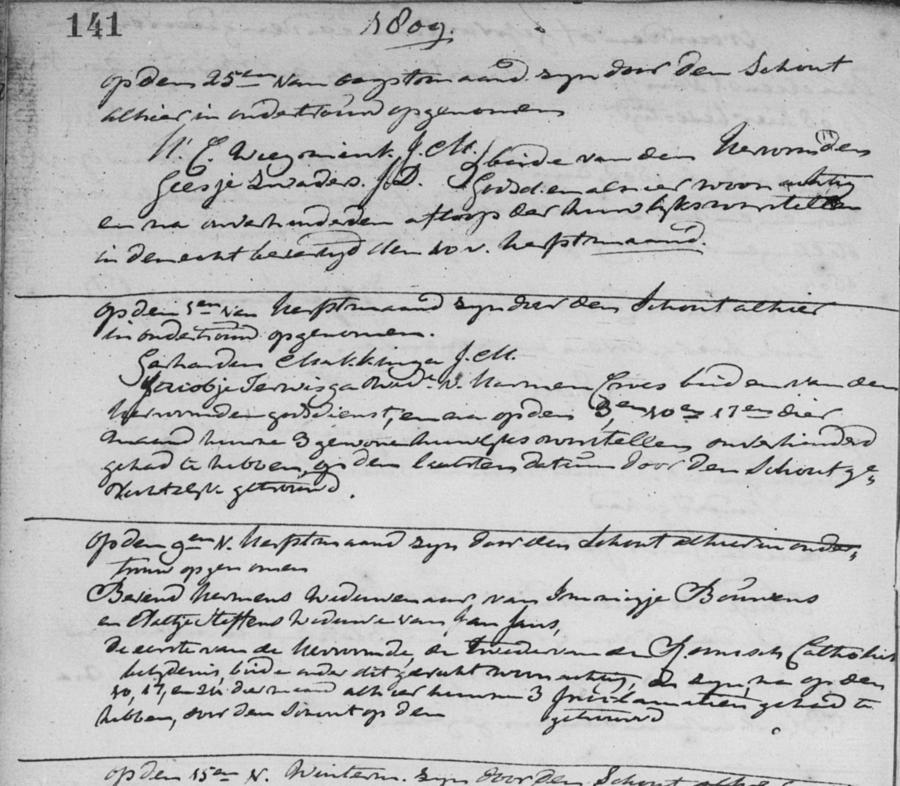 141
1809.
op den 25en van oogstmaand zijn door den Schout
alhier in ondertrouw opgenomen
W. E. J.M. beide van den Hervormden
Geesje Zwaders. J.D. Godsd. en alhier woonachtig
en na onverhinderden afloop der huwelijksvoorstellen
in den echt bevestigd den 10 v. herfstmaand.
op den 5en van herfstmaand zijn door den Schout alhier
in ondertrouw opgenomen.
Gerhardus Makkinga J.M.
Jacobje Terwisga Wede. v. Harmen beiden van den
hervormden godsdienst, en na op den 3en 10en 17en dier
maand hunne 3 gewone huwelijks voorstellen onverhinderd
gehad te hebben, op den laatsten datum door den Schout ge-
rechtelijk getrouwd.
op den 9en v. herfstmaand zijn door den Schout alhier in onder-
trouw opgenomen
Berend Hermens Weduwenaar van Immigje Bouwens
en Aaltje Steffens weduwe van Jan Jans,
de eerste van de hervormde, de tweede van de Roomsch Catholiek
belijdenis, beide onder dit gerecht woonachtig, en zijn, na op den
10, 17, en 24 dier maand alhier hunne 3 proclamatien gehad te
hebben, door den Schout op den getrouwd
op den 15en v. Winterm. zijn door den Schout